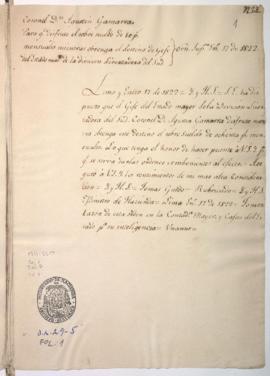 Coronel Dn. Agustin Gamarra
Para qe. disfrute el sobre sueldo de 80 ps.
mensuales mientras obtenga el destino de Gefe
del Estado mayor de la division Libertadora del Sud.
Orn. Supr. En. 17 de 1822
1
Lima y Enero 17 de 1822 = Y. H. S. = S. E. ha dis-
puesto que el Gefe del Estado mayor de la Division Liberta-
dora del Sud. Coronel Dn. Agustin Gamarra disfrute mien-
tras obtenga este destino el sobre sueldo de ochenta ps. men-
suales. Lo que tengo el honor de hacer presente á V. S. Y. pa.
qe. se sirva dar las ordenes combenientes al efecto = Ten-
go á V. S. Y. los sentimientos de mi mas alta Considera-
cion = Y. H. S. = Tomas Guido = Rubricado = Y. H. S.
Ministro de Hacienda = Lima En. 17 de 1822 = Tomese
razon de esta orden en la Contadª. Mayor, y Cajas del Es-
tado pª. su inteligencia = Unanue =
O.L. 29-5
FOL: 1